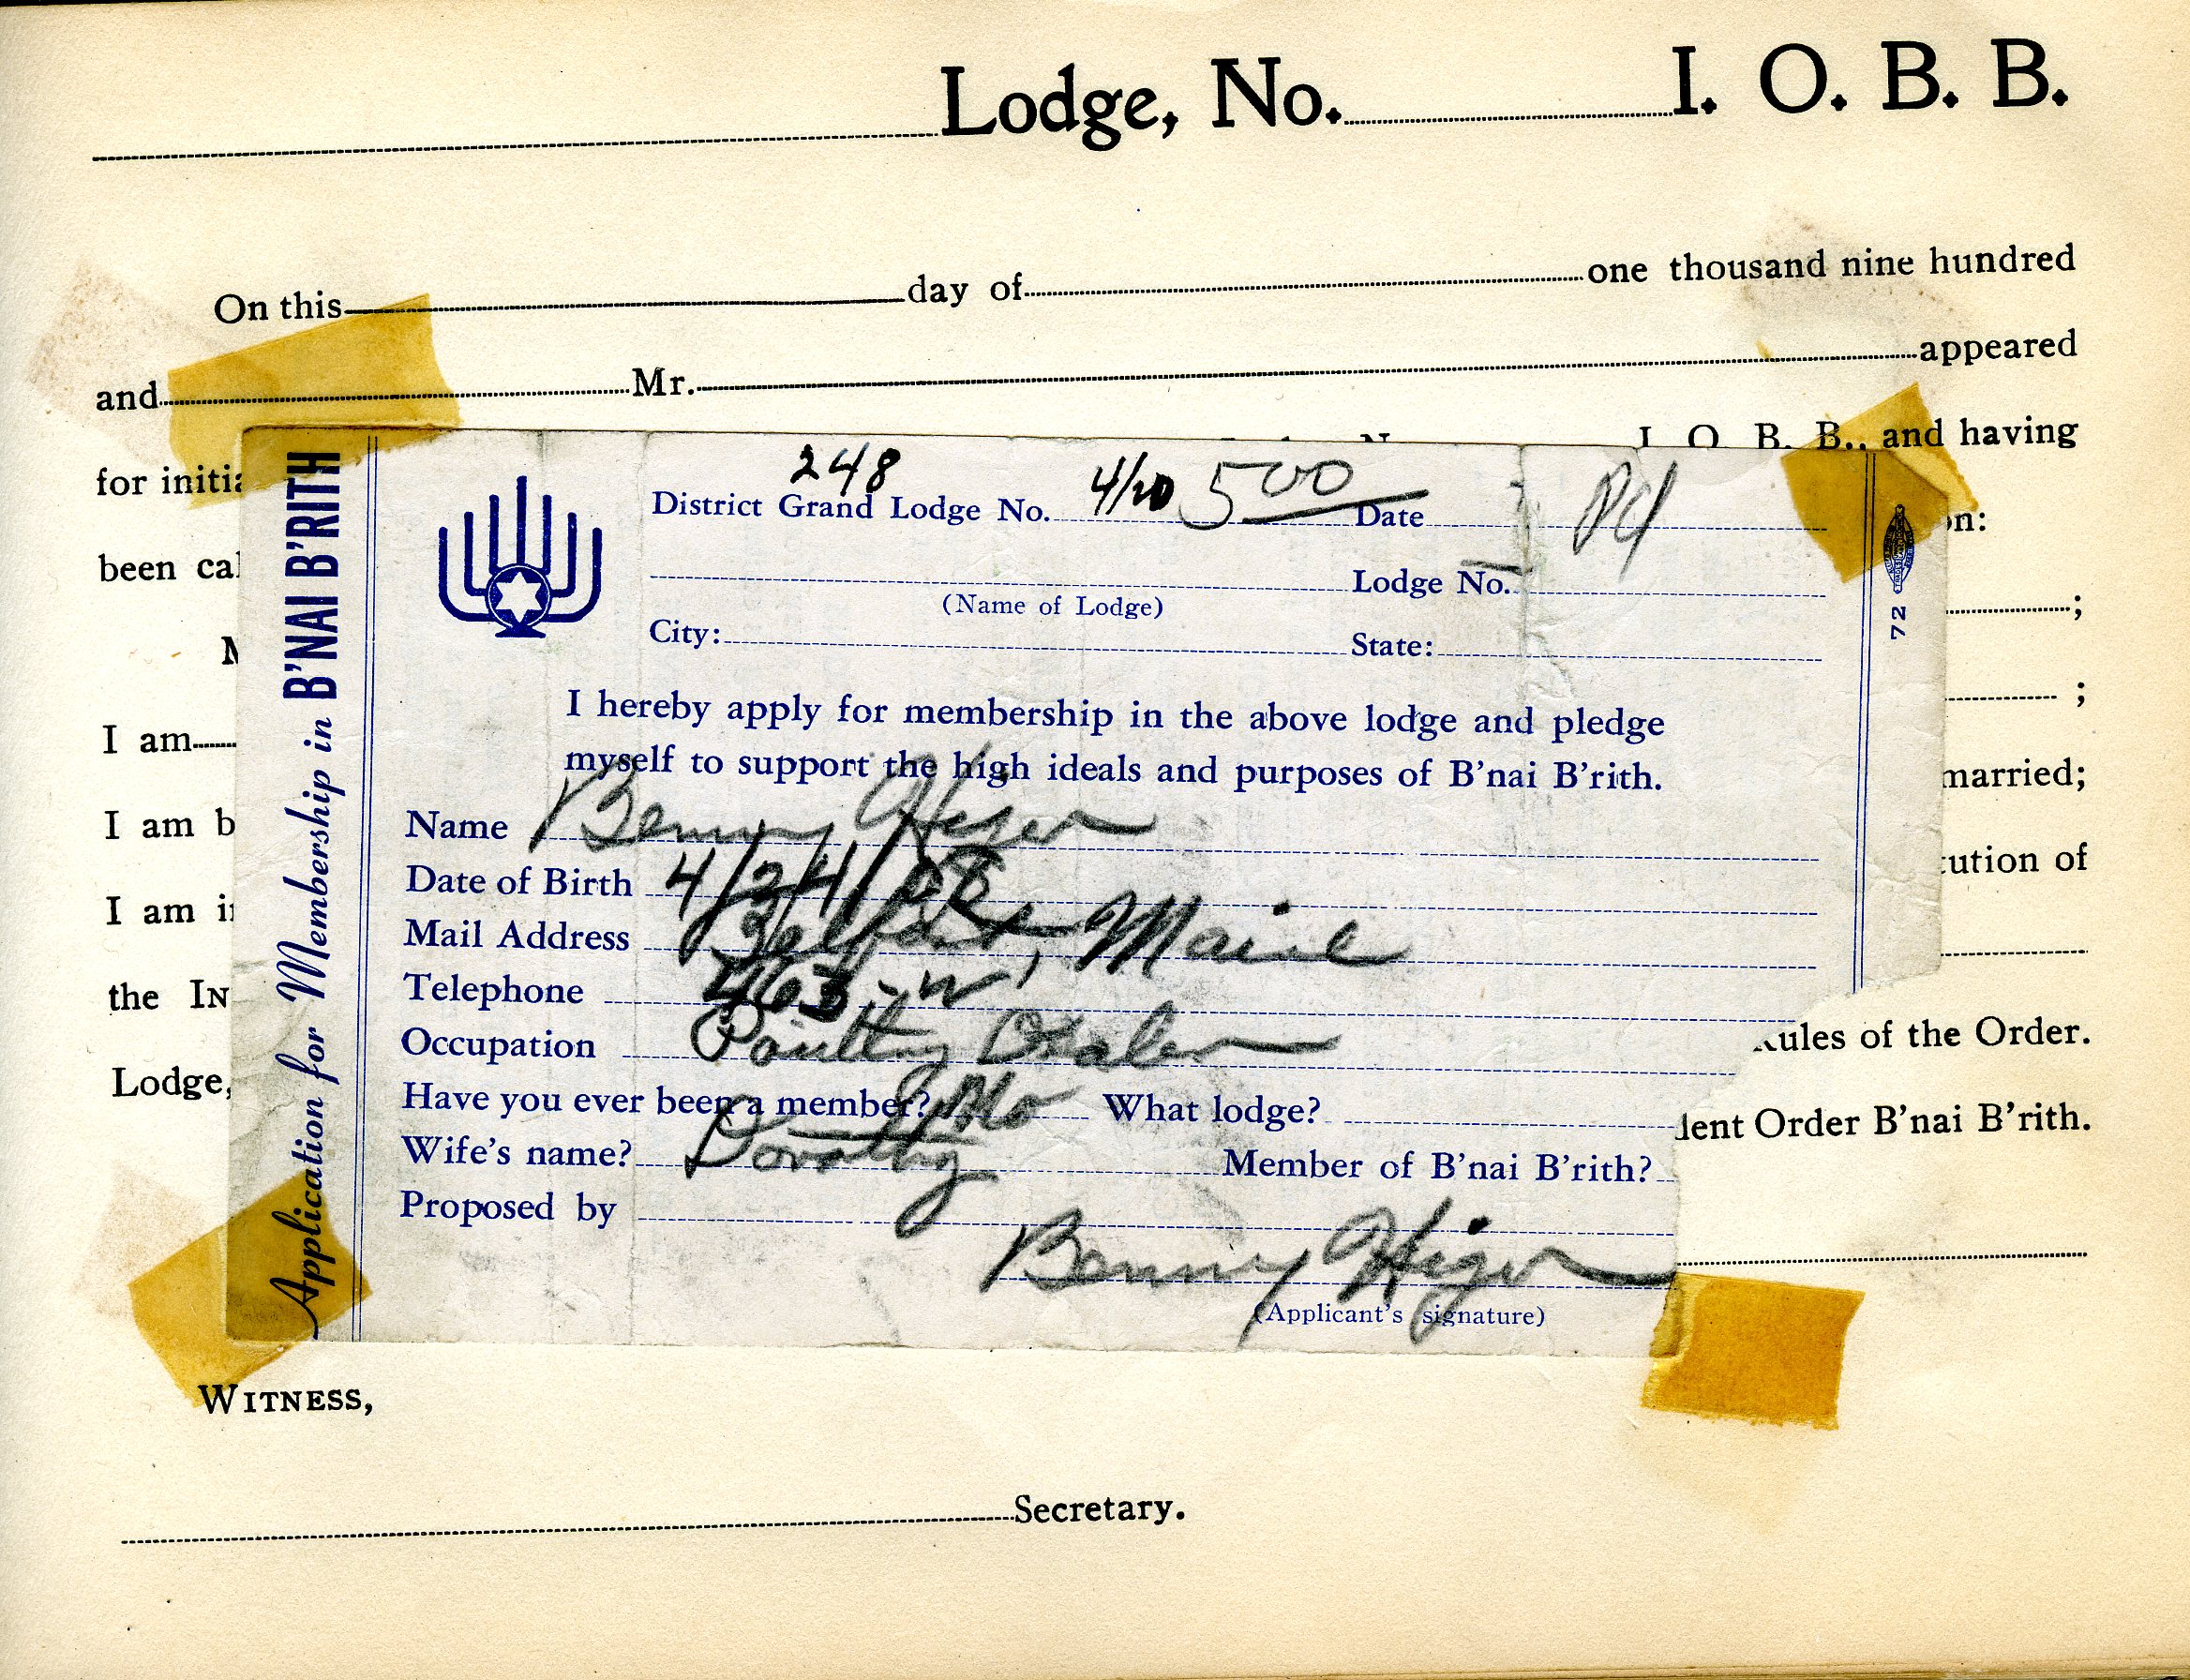 Lodge, No. I. O. B. B.
On this day of one thousand nine hundred
and Mr. appeared
I. O. B. B., and having
for initia
been cal on:
;
M ;
I am married;
I am b tution of
I am in
the IN Rules of the Order.
Lodge, dent Order B'nai B'rith.
Application for Membership in B'NAI B'RITH
248
District Grand Lodge No. 4/20 500 Date Pd
(Name of Lodge) Lodge No.
City: State:
72
I hereby apply for membership in the above lodge and pledge
myself to support the high ideals and purposes of B'nai B'rith.
Name Benny Higer
Date of Birth 4/24/08
Mail Address Belfast, Maine
Telephone 463-W
Occupation Poultry Dealer
Have you ever been a member? No What lodge?
Wife's name? Dorothy Member of B'nai B'rith?
Proposed by
Benny Higer
(Applicant's signature)
WITNESS,
Secretary.